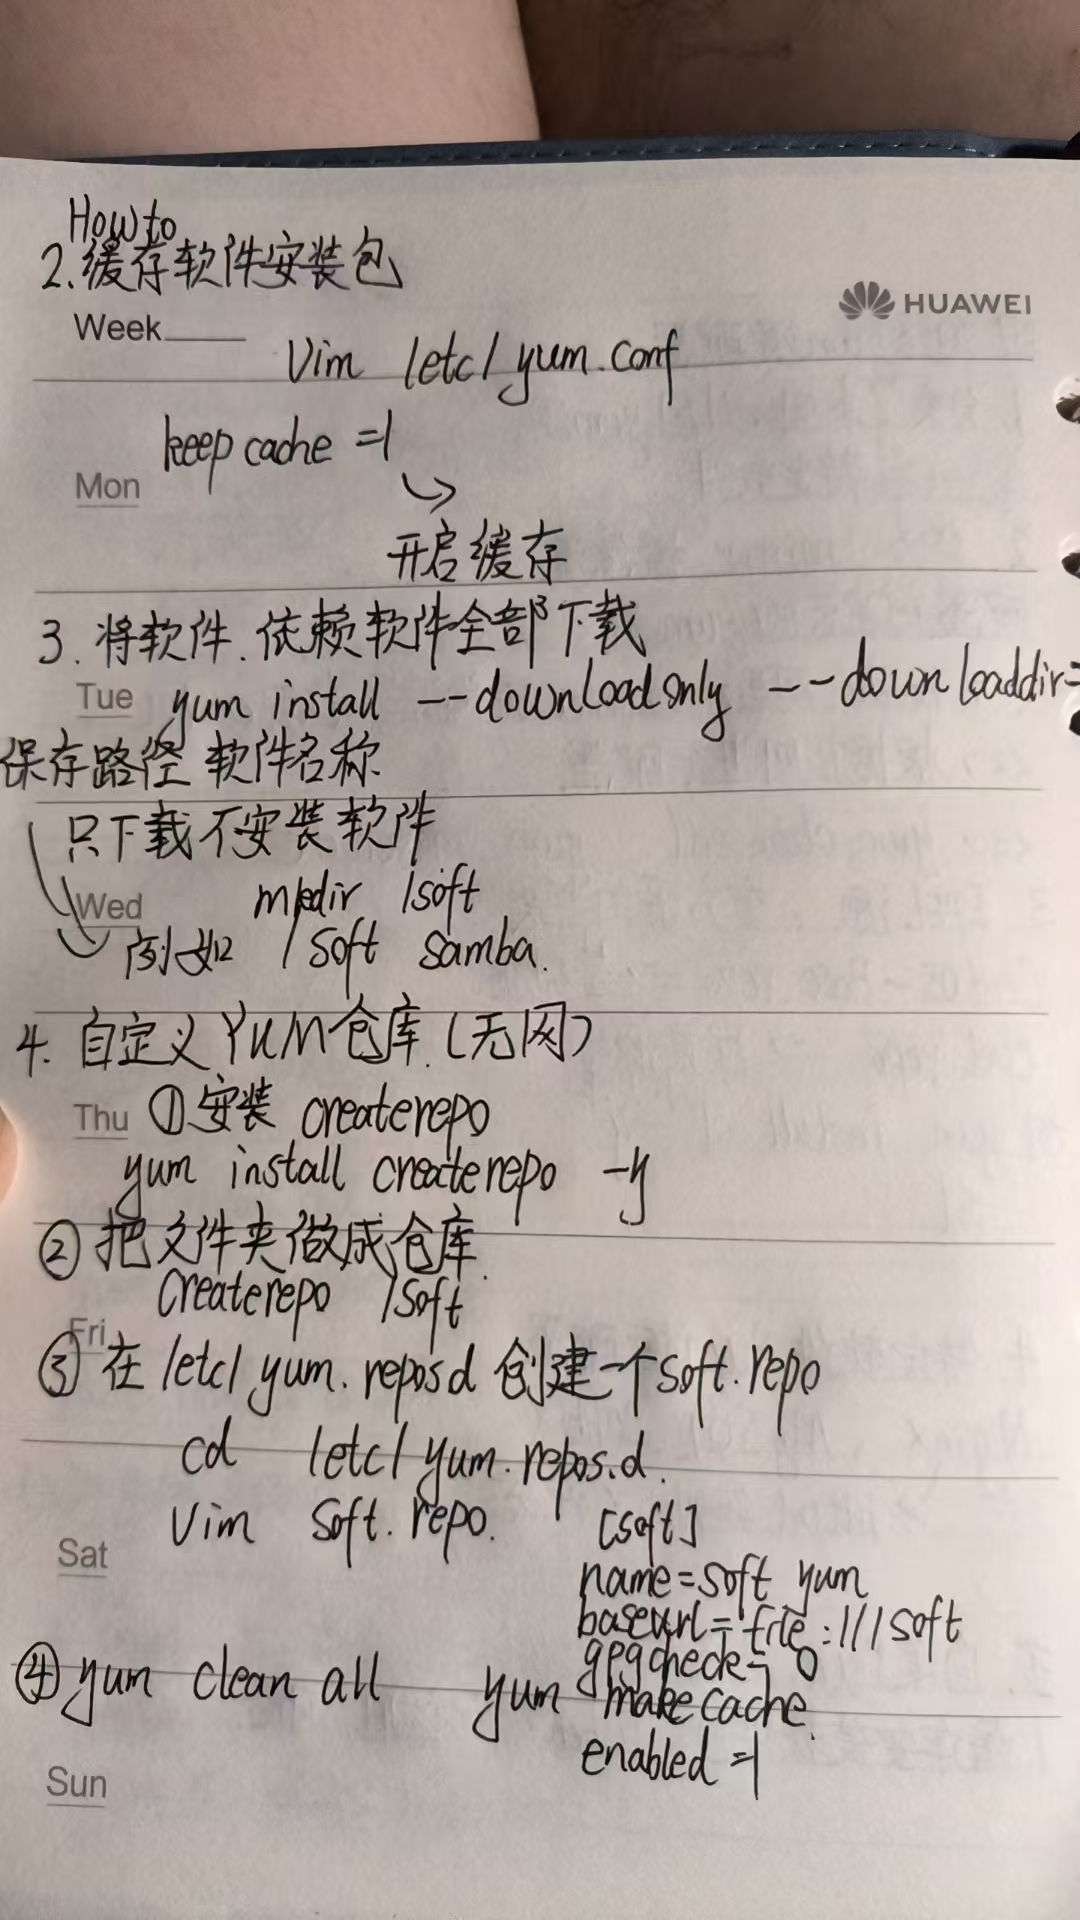 How to
2.缓存软件安装包
HUAWEI
Week
Vim /etc/yum.conf
keep cache =1
Mon
开启缓存
3.将软件.依赖软件全部下载
Tue yum install --downloadonly --downloaddir=
保存路径 软件名称
只下载不安装软件
mkdir /soft
Wed
例如 /soft samba.
4.自定义YUM仓库(无网)
Thu ①安装 createrepo
yum install createrepo -y
②把文件夹做成仓库.
Createrepo /soft
Fri
③在/etc/yum.reposd创建一个soft.repo
cd /etc/yum.repos.d.
Vim Soft.repo. [soft]
Sat
name=soft yum
baseurl=file:///soft
gpgcheck=0
④yum clean all yum makecache.
enabled=1
Sun